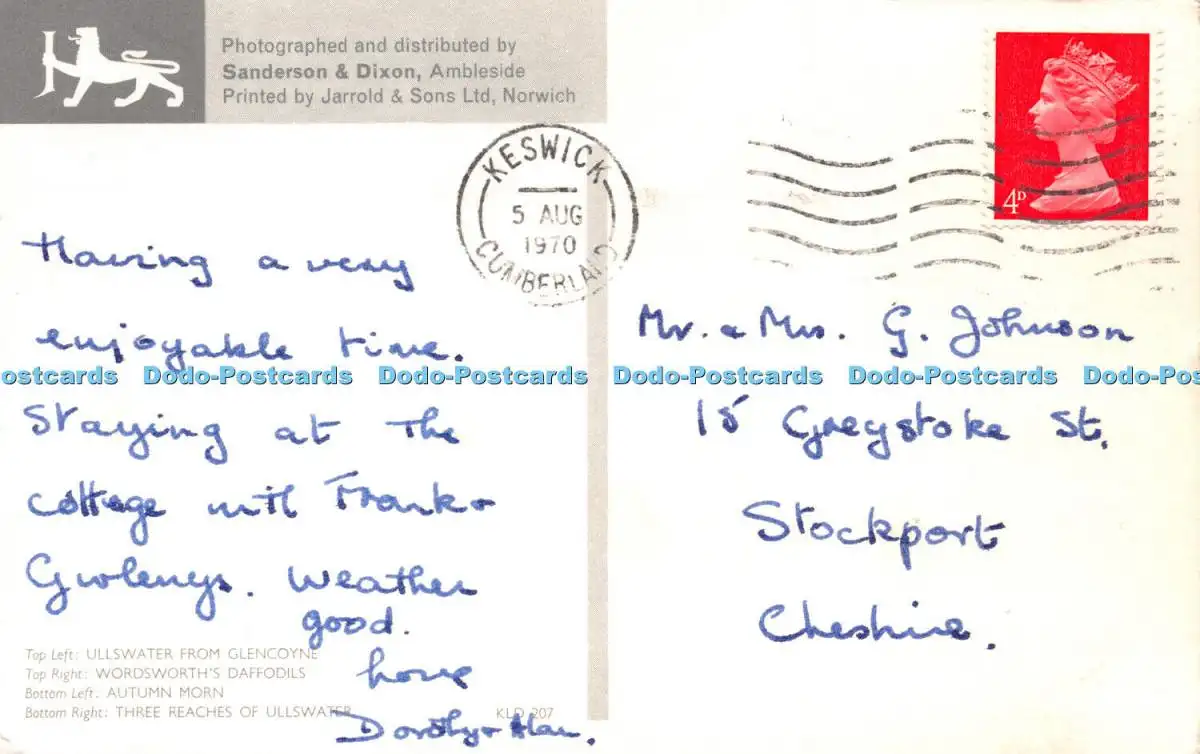 Photographed and distributed by
Sanderson & Dixon, Ambleside
Printed by Jarrold & Sons Ltd, Norwich
KESWICK
5 AUG
1970
CUMBERLAND
4D
Having a very
enjoyable time.
Staying at the
cottage with Frank +
Gwlenys. Weather
good.
love
Dorothy + Alan.
Mr. & Mrs. G. Johnson
15 Greystoke St.
Stockport
Cheshire.
ostcards Dodo-Postcards Dodo-Postcards Dodo-Postcards Dodo-Postcards Dodo-Post
Top Left: ULLSWATER FROM GLENCOYNE
Top Right: WORDSWORTH'S DAFFODILS
Bottom Left: AUTUMN MORN
Bottom Right: THREE REACHES OF ULLSWATER
KLD 207